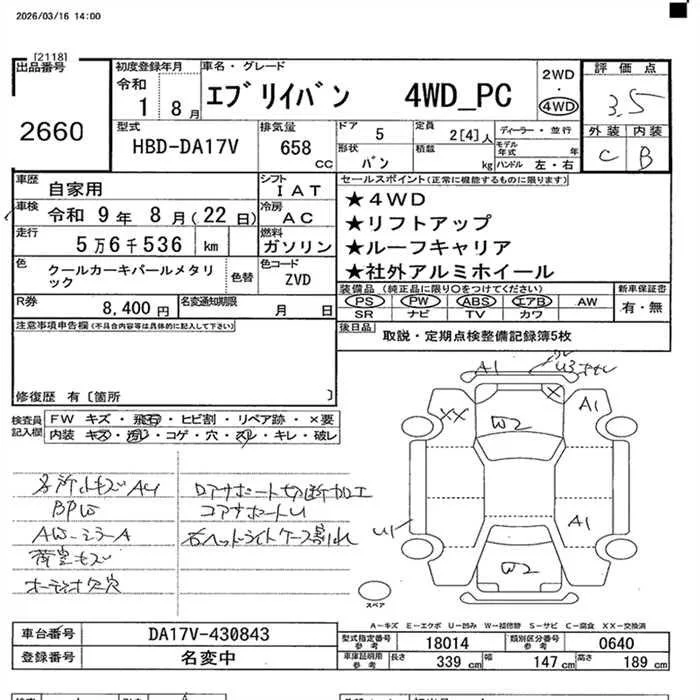 2026/03/16 14:00
[2118]
出品番号
2660
初度登録年月
令和
1 8月
車名・グレード
ｴﾌﾞﾘｲﾊﾞﾝ 4WD_PC
2WD
・
4WD
評価点
3.5
外装 内装
C B
型式
HBD-DA17V
排気量
658
CC
ドア
5
形状
バン
定員
2[4]人
積載
kg
ディーラー・並行
モデル年式 年
ハンドル 左・右
車歴
自家用
シフト
IAT
車検
令和 9年 8月(22日)
冷房
AC
走行
5万6千536 km
燃料
ガソリン
色
クールカーキパールメタリック
色替
色コード
ZVD
R券
8,400円
名変通知期限
月 日
セールスポイント(正常に機能するものに限ります)
★4WD
★リフトアップ
★ルーフキャリア
★社外アルミホイール
装備品 (純正品に限り○をつけてください)
PS PW ABS エアB AW
SR ナビ TV カワ
新車保証書
有・無
後日品
取説・定期点検整備記録簿5枚
注意事項申告欄(不具合内容等は具体的に記入して下さい)
修復歴 有〔箇所 〕
検査員
記入欄
FW キズ・飛石・ヒビ割・リペア跡・×要
内装 キズ・汚れ・コゲ・穴・スレ・キレ・破レ
各所小キズAU
BPW
AW・ミラーA
荷室キズ
オーディオ欠穴
ロアサポート切断加工
コアサポートU
右ヘッドライトケース割れ
A1
U3
XX
X
A1
W2
A1
U1
W2
スペア
A－キズ E－エクボ U－凹み W－補修跡 S－サビ C－腐食 XX－交換済
車台番号
DA17V-430843
登録番号
名変中
型式指定番号
参考
18014
類別区分番号
参考
0640
車庫証明用
参考
長さ
339 cm
幅
147 cm
高さ
189 cm